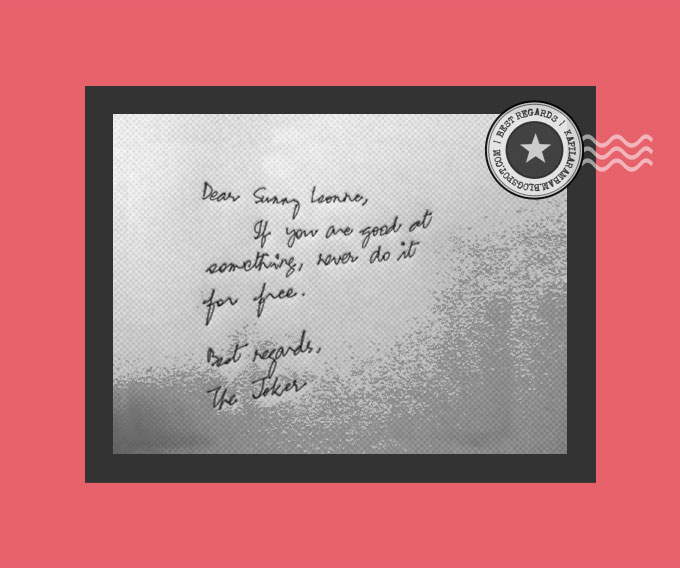 Dear Sunny Leonne,
If you are good at
something, never do it
for free.
Best regards,
The Joker
| BEST REGARDS | KAPILARAMBAM.BLOGSPOT.COM